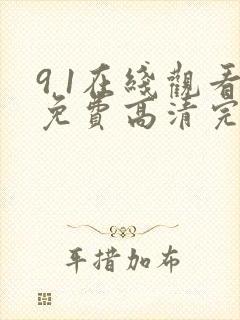 9.1在綫觀看
免費高清完
平措加布